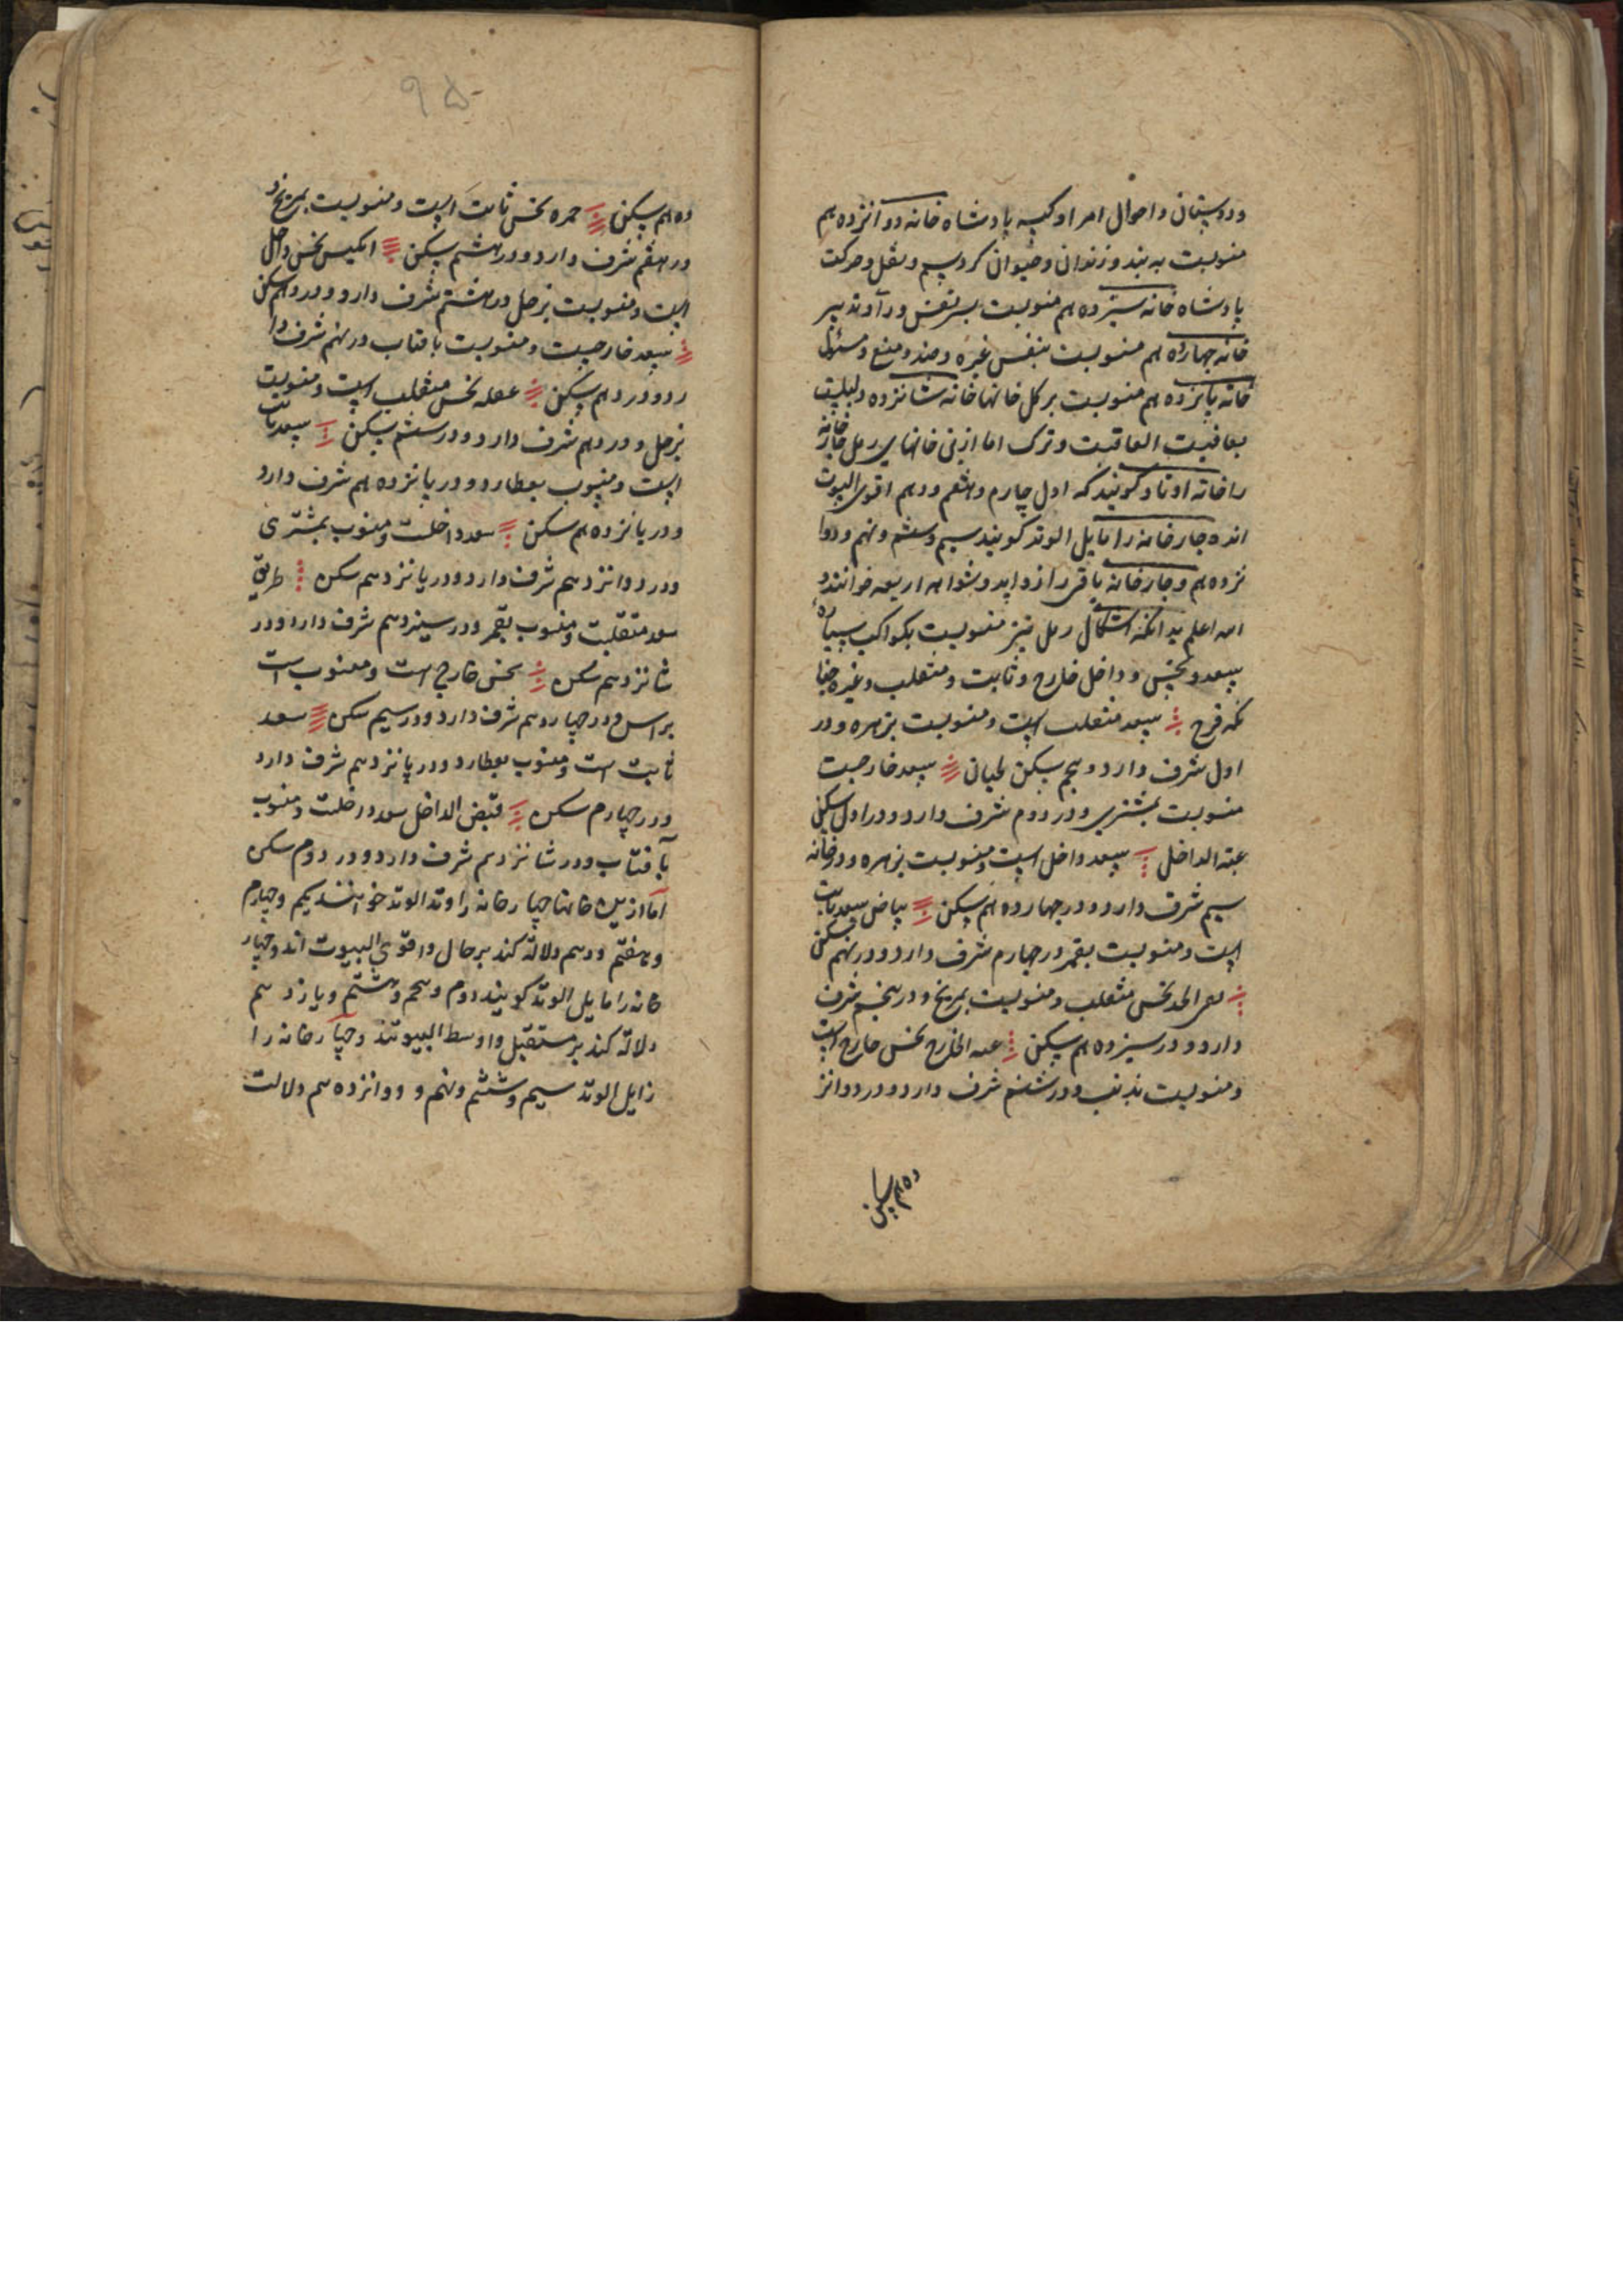 ودوستان و احوال امرا و کیسه پادشاه خانه دوآنزده هم
منسوبست به بند و زندان و حیوان کردسیم و نقل و حرکت
پادشاه خانه سیزده هم منسوبست بسر نفس و رآ و تدبیر
خانه چهارده هم منسوبست بنفس غیره و ضد و منع و مسئول
خانه پانزده هم منسوبست بر کل خانها خانه شانزده دلیلست
بعاقبت العاقبت و ترک اما ازینی خانهای رمل چار خانه
را خانه اوتاد کویند که اول چارم و هفتم و دهم اقوی البیوت
انده چار خانه را مایل الوتد کویند سیم و ششم و نهم و دوا
نزده هم و چار خانه باقی را زواید و شواهد اربعه خوانند و
الله اعلم بدانکه اشکال رمل نیز منسوبست بکواکب سیاره
بسعد و نحس و داخل خارج و ثابت و منقلب و غیره چنا
نکه فرح ⁝ سعد منقلب است و منسوبست بزهره و در
اول شرف دارد و پنجم سکن لحیان سعد خارجست
منسوبست بمشتری و در دوم شرف دارد و در اول سکن
عتبه الداخل سعد داخل است و منسوبست بزهره و در خانه
سیم شرف دارد و در چهارده هم سکن بیاض سعد ثابت
است و منسوبست بقمر در چهارم شرف دارد و در نهم سکن
نقی الخد نحس منقلب و منسوبست بمریخ و در پنجم شرف
دارد و در سیزده هم سکن عتبه الخارج نحس خارج است
و منسوبست بذنب و در ششم شرف دارد و در دوانز
ده هم سکن
۹۵
ده هم سکن حمره نحس ثابت است و منسوبست بمریخ و
در هفتم شرف دارد و در هشتم سکن انکیس نحس داخل
است و منسوبست بزحل در هشتم شرف دارد و در دهم سکن
سعد خارجست و منسوبست بافتاب در نهم شرف دا
رد و در دهم سکن عقله نحس منقلب است و منسوبست
بزحل و در دهم شرف دارد و در ششم سکن سعد ثابت
است و منسوب بعطارد و در یانزده هم شرف دارد
و در یانزده هم سکن سعد داخلست و منسوب بمشتری
و در دوانزدهم شرف دارد و در یانزدهم سکن طریق
سعد منقلبست و منسوب بقمر و در سیزدهم شرف دارد و در
شانزدهم سکن نحس خارج است و منسوب است
براس و در چهاردهم شرف دارد و در سیم سکن سعد
ثابت است و منسوب بعطارد و در پانزدهم شرف دارد
و در چهارم سکن قبض الداخل سعد داخلست و منسوب
بآفتاب و در شانزدهم شرف دارد و در دوم سکن
اما ازین خانها چهار خانه را وتد الوتد خوانند یکم و چهارم
و هفتم و دهم دلاله کند بر حال و اقوی البیوت اند و چهار
خانه را مایل الوتد کویند دوم و پنجم و هشتم و یازدهم
دلاله کند بر مستقبل و اوسط البیوتند و چهار خانه را
زایل الوتد سیم و ششم و نهم و دوانزده هم دلالت